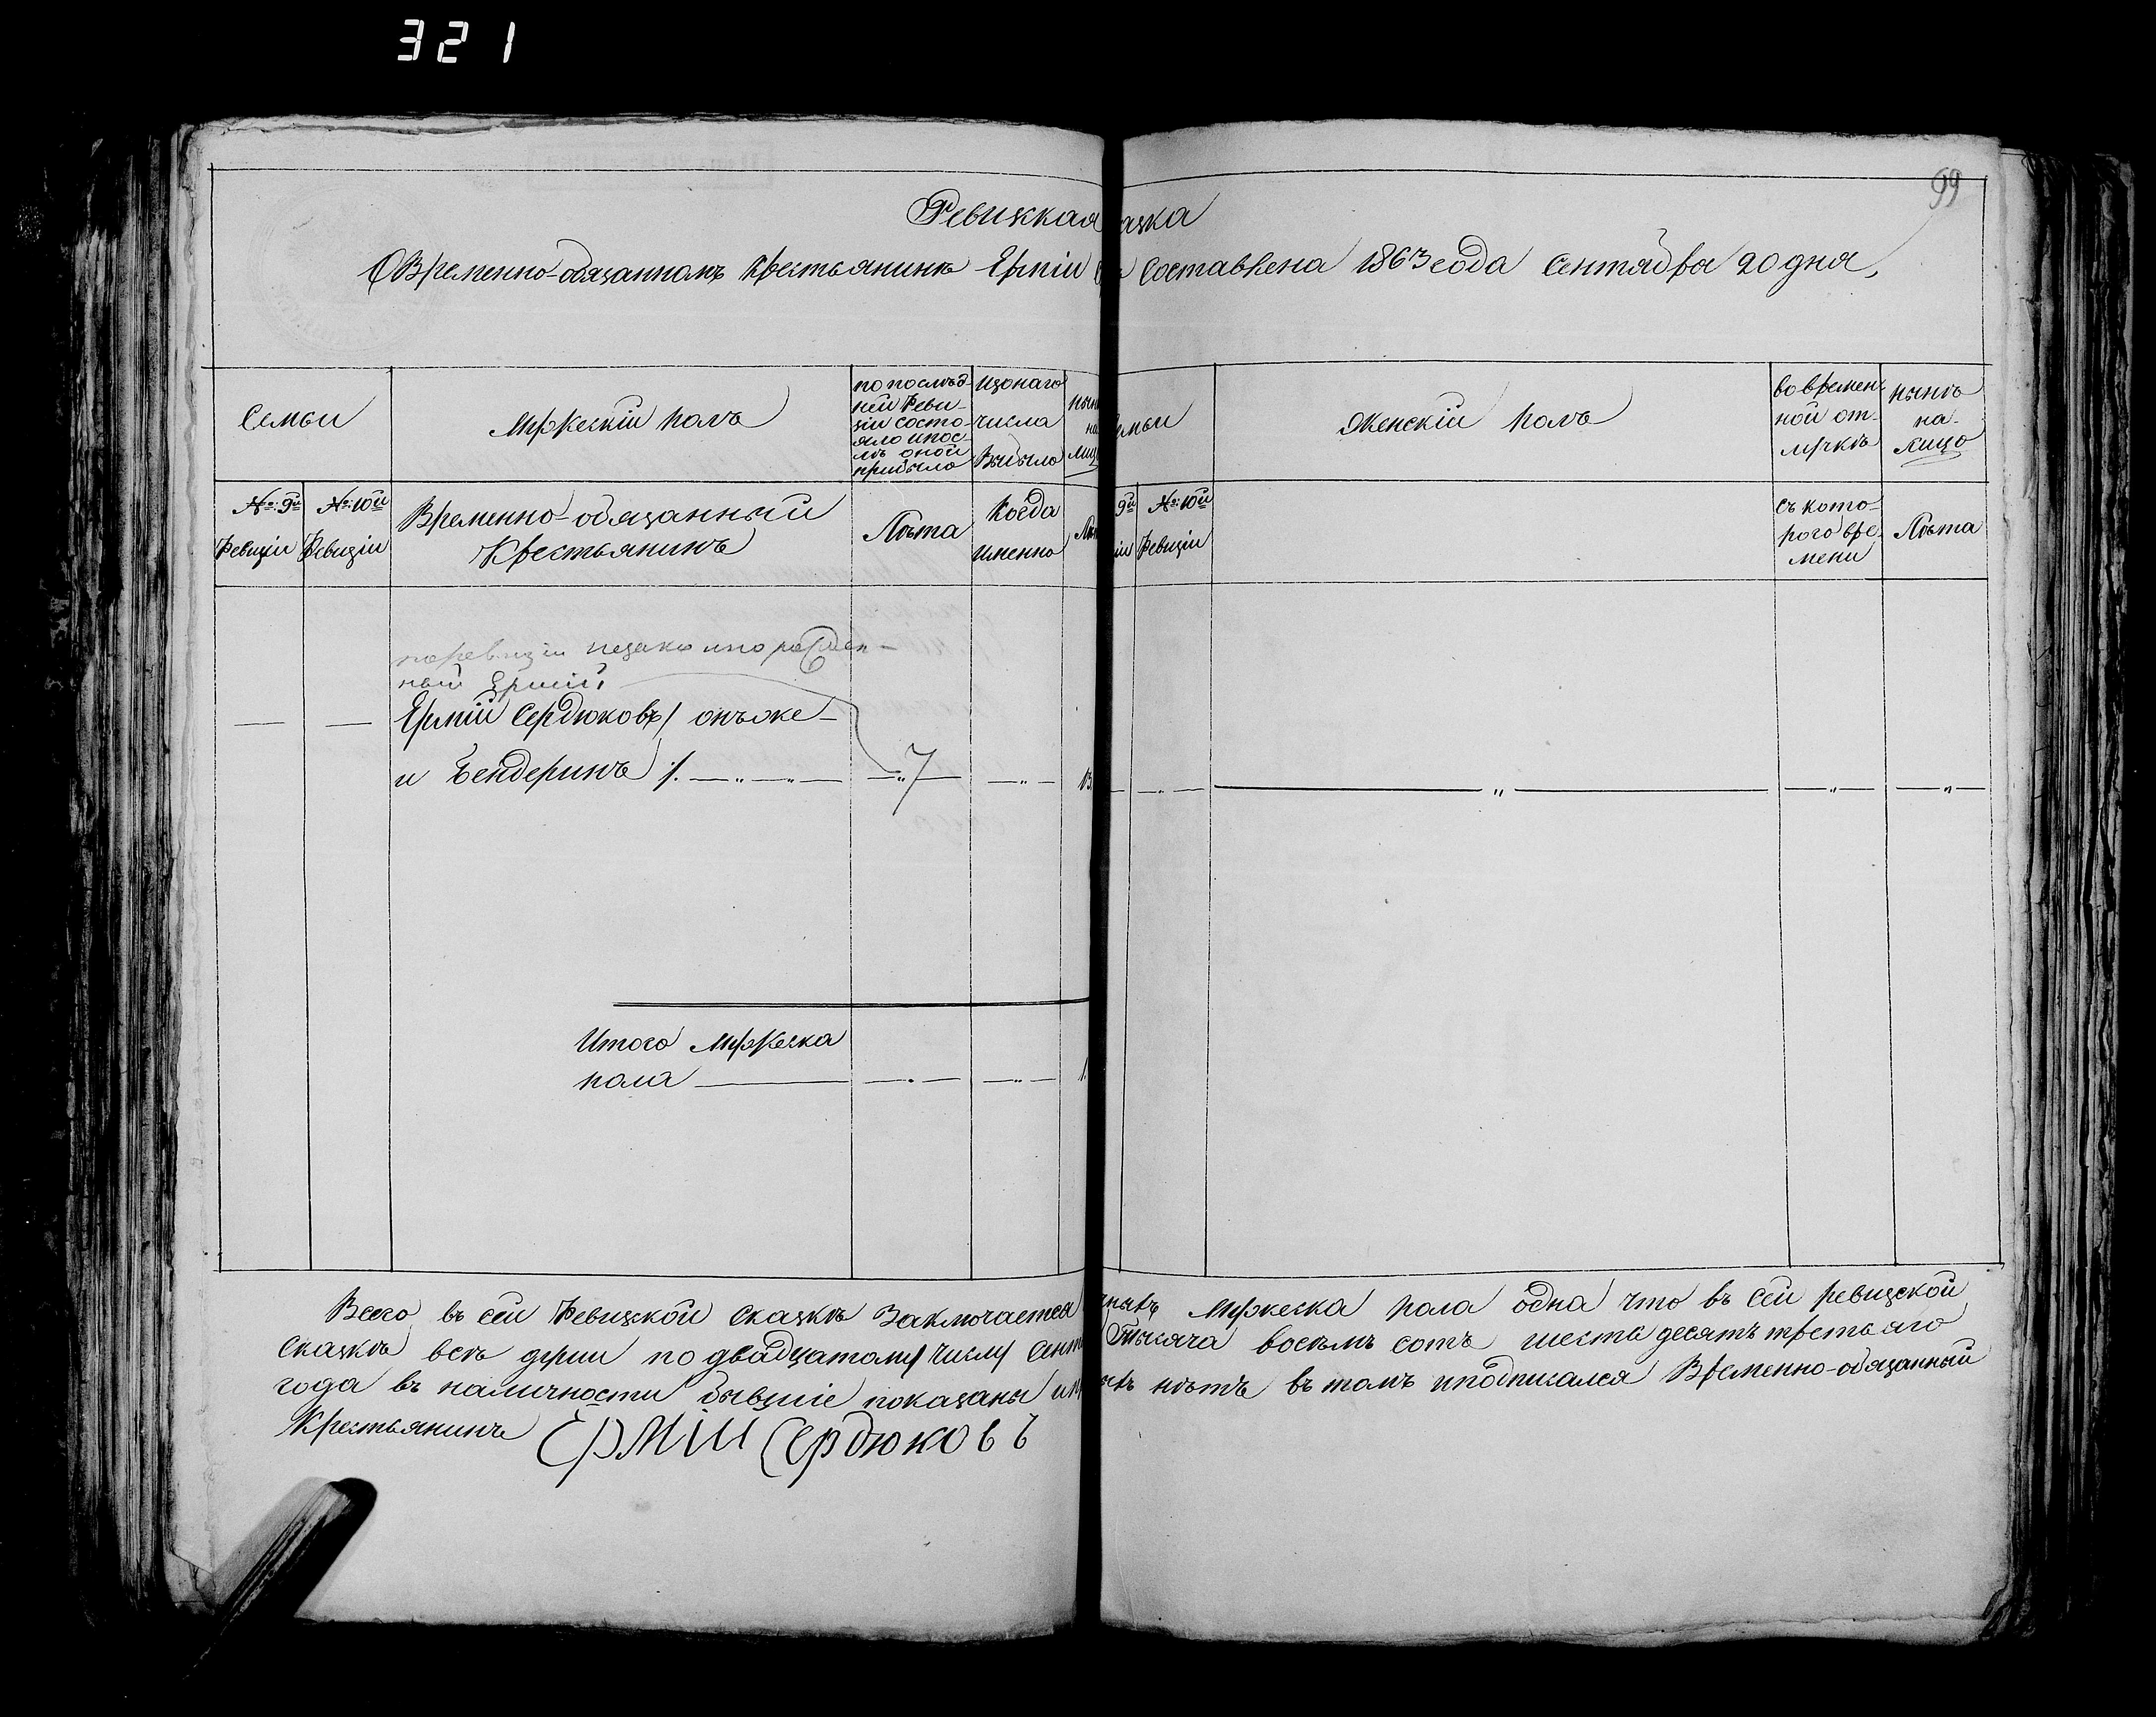 321
99
Ревизская азка
О Временно-обязанномъ крестьянинѣ Ермiи составлена 1863 года Сентября 20 дня,
Семьи
Мужескiй полъ
по послѣд-
ней Реви-
зiи состо-
яло и пос-
лѣ оной
прибыло
изонаго
числа
выбыло
Женскiй полъ
во времен-
ной от-
лучкѣ
нынѣ
на-
лицо
№: 9й Ревизiи
№: 10й Ревизiи
Временно-обязанный
Крестьянинъ
Лѣта
Когда
именно
№: 10й
Ревизiи
съ кото-
рого вре-
мени
Лѣта
по ревизiи незаконнорожден-
ный Ермiй
Ермiй Сердюковъ / онъ же-
и Бендеринъ /.
7
13
Итого Мужеска
пола
1.
Всего въ сей Ревизской Сказкѣ Заключается Мужеска пола одна что въ Сей ревизской
Сказкѣ всѣ души по двадцатому числу Сент Тысяча восемь сотъ шестьдесятъ третьяго
года въ наличности бывшiе показаны и нѣтъ въ томъ и подписался Временно-обязанный
Крестьянинъ Ермiй Сердюковъ